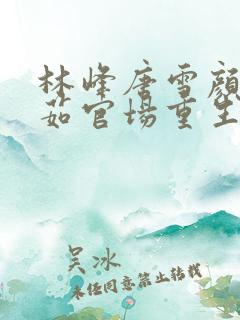 林峰唐雪颜
茹官场重生
吴冰
未经同意禁止转载